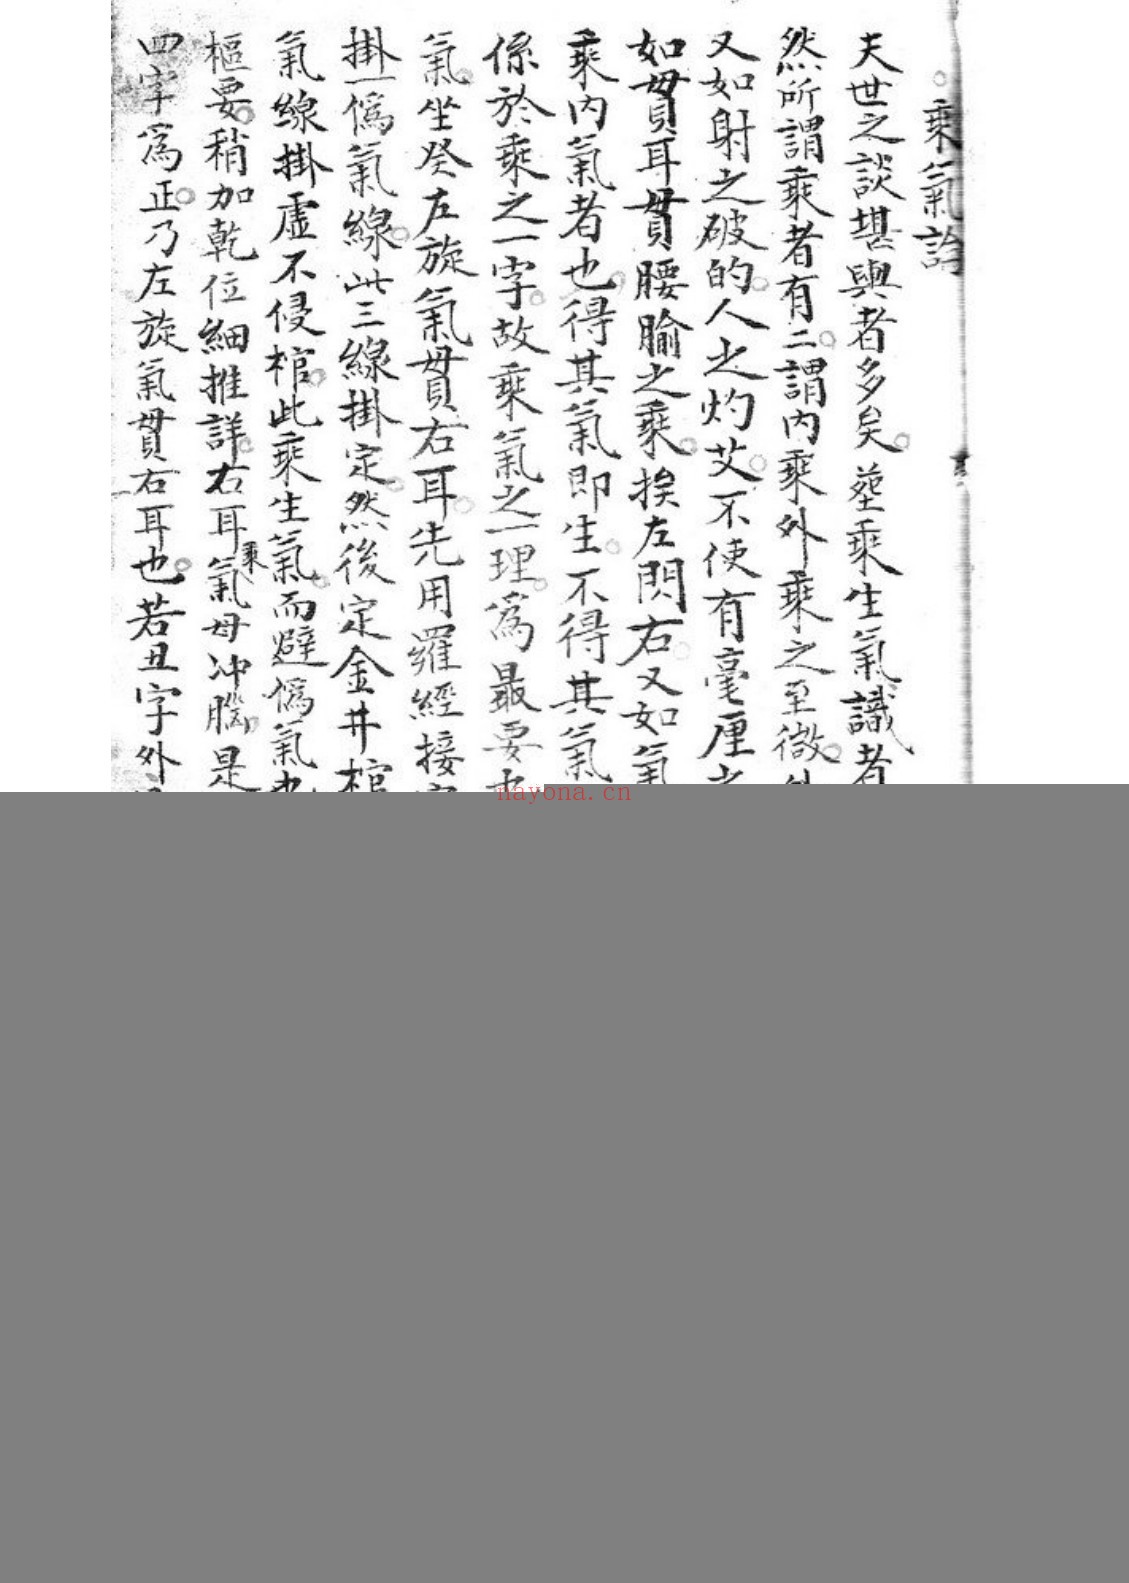 乘氣論
夫世之談堪輿者多矣塟乘生氣識者
然所謂乘者有二謂內乘外乘之至微
又如射之破的人之灼艾不使有毫厘之
如貫耳貫腰腧之乘挨左閃右又如氣
乘內氣者也得其氣即生不得其氣
係於乘之一字故乘氣之一理為最要也
氣坐癸左旋氣貫右耳先用羅經接
掛一偽氣線此三線掛定然後定金井棺
氣線掛虛不侵棺此乘生氣而避偽氣也
樞要稍加乾位細推詳右耳乘氣毋冲腦是
四字為正乃左旋氣貫右耳也若丑字外
nayona.cn